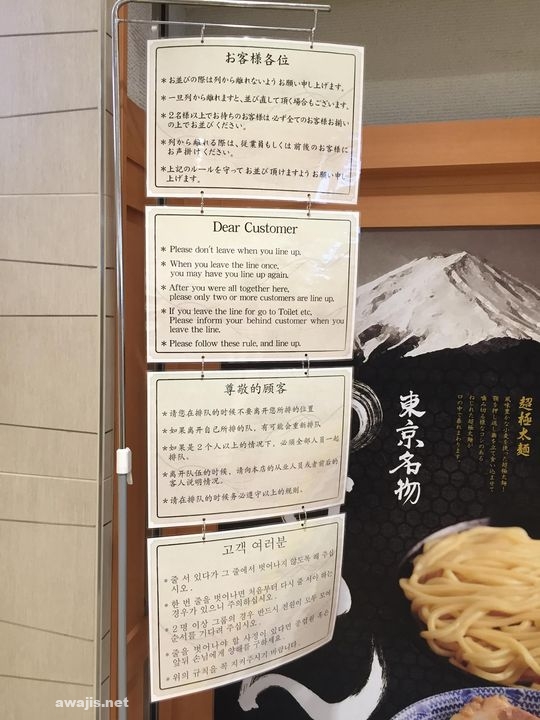 お客様各位
*お並びの際は列から離れないようお願い申し上げます。
*一旦列から離れますと、並び直して頂く場合もございます。
*2名様以上でお待ちのお客様は必ず全てのお客様お揃い
の上でお並びください。
*列から離れる際は、従業員もしくは前後のお客様に
お声掛けください。
*上記のルールを守ってお並び頂けますようお願い申し
上げます。
Dear Customer
* Please don't leave when you line up.
* When you leave the line once,
you may have you line up again.
* After you were all together here,
please only two or more customers are line up.
* If you leave the line for go to Toilet etc,
Please inform your behind customer when you
leave the line.
* Please follow these rule, and line up.
尊敬的顾客
*请您在排队的时候不要离开您所排的位置
*如果离开自己所排的队，有可能会重新排队
*如果是2个人以上的情况下，必须全部人员一起
排队。
*离开队伍的时候，请向本店的从业人员或者前后的
客人说明情况。
*请在排队的时候务必遵守以上的规则。
고객 여러분
*줄 서 있다가 그 줄에서 벗어나지 않도록 해 주십
시오.
*한 번 줄을 벗어나면 처음부터 다시 줄 서야 하는
경우가 있으니 주의하십시오.
*2명 이상 그룹의 경우 반드시 전원이 모두 모여
순서를 기다려 주십시오.
*줄을 벗어나야 할 사정이 있다면 종업원 혹은
앞뒤 손님에게 양해를 구하세요.
*위의 규칙을 꼭 지켜주시기 바랍니다
東京名物
超極太麺
風味豊かな小麦を使った超極太麺!
顎を押し返し歯を立て食い込ませて
噛み切る様なコシのある
ねじれた超極太麺が
口の中で暴れまわります
awajis.net